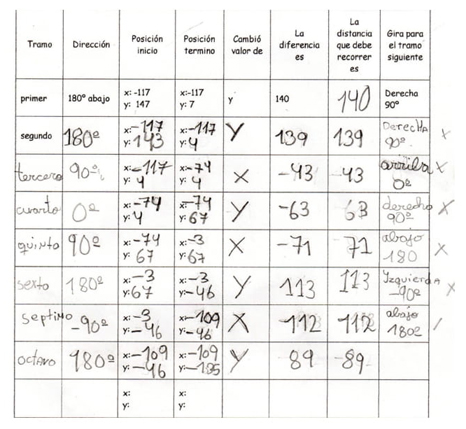 Tramo Dirección Posición inicio Posición termino Cambió valor de La diferencia es La distancia que debe recorrer es Gira para el tramo siguiente
primer 180º abajo x: -117 y: 147 x:-117 y: 7 y 140 140 Derecha 90º
segundo 180º x:-117 y: 143 x:-117 y: 4 Y 139 139 Derecha 90º x
tercero 90º x:-117 y: 4 x:-74 y: 4 X -43 43 arriba 0º x
cuarto 0º x:-74 y: 4 x:-74 y: 67 Y -63 63 derecha 90º x
quinto 90º x:-74 y: 67 x:-3 y: 67 X -71 71 abajo 180 x
sexto 180º x:-3 y: 67 x:-3 y:-46 Y 113 113 Yzquierda -90º x
septimo -90º x:-3 y:-46 x:-109 y:-46 X -112 112 abajo 180º /
octavo 180º x:-109 y:-46 x:-109 y: Y 89 -89
x: y: x: y: